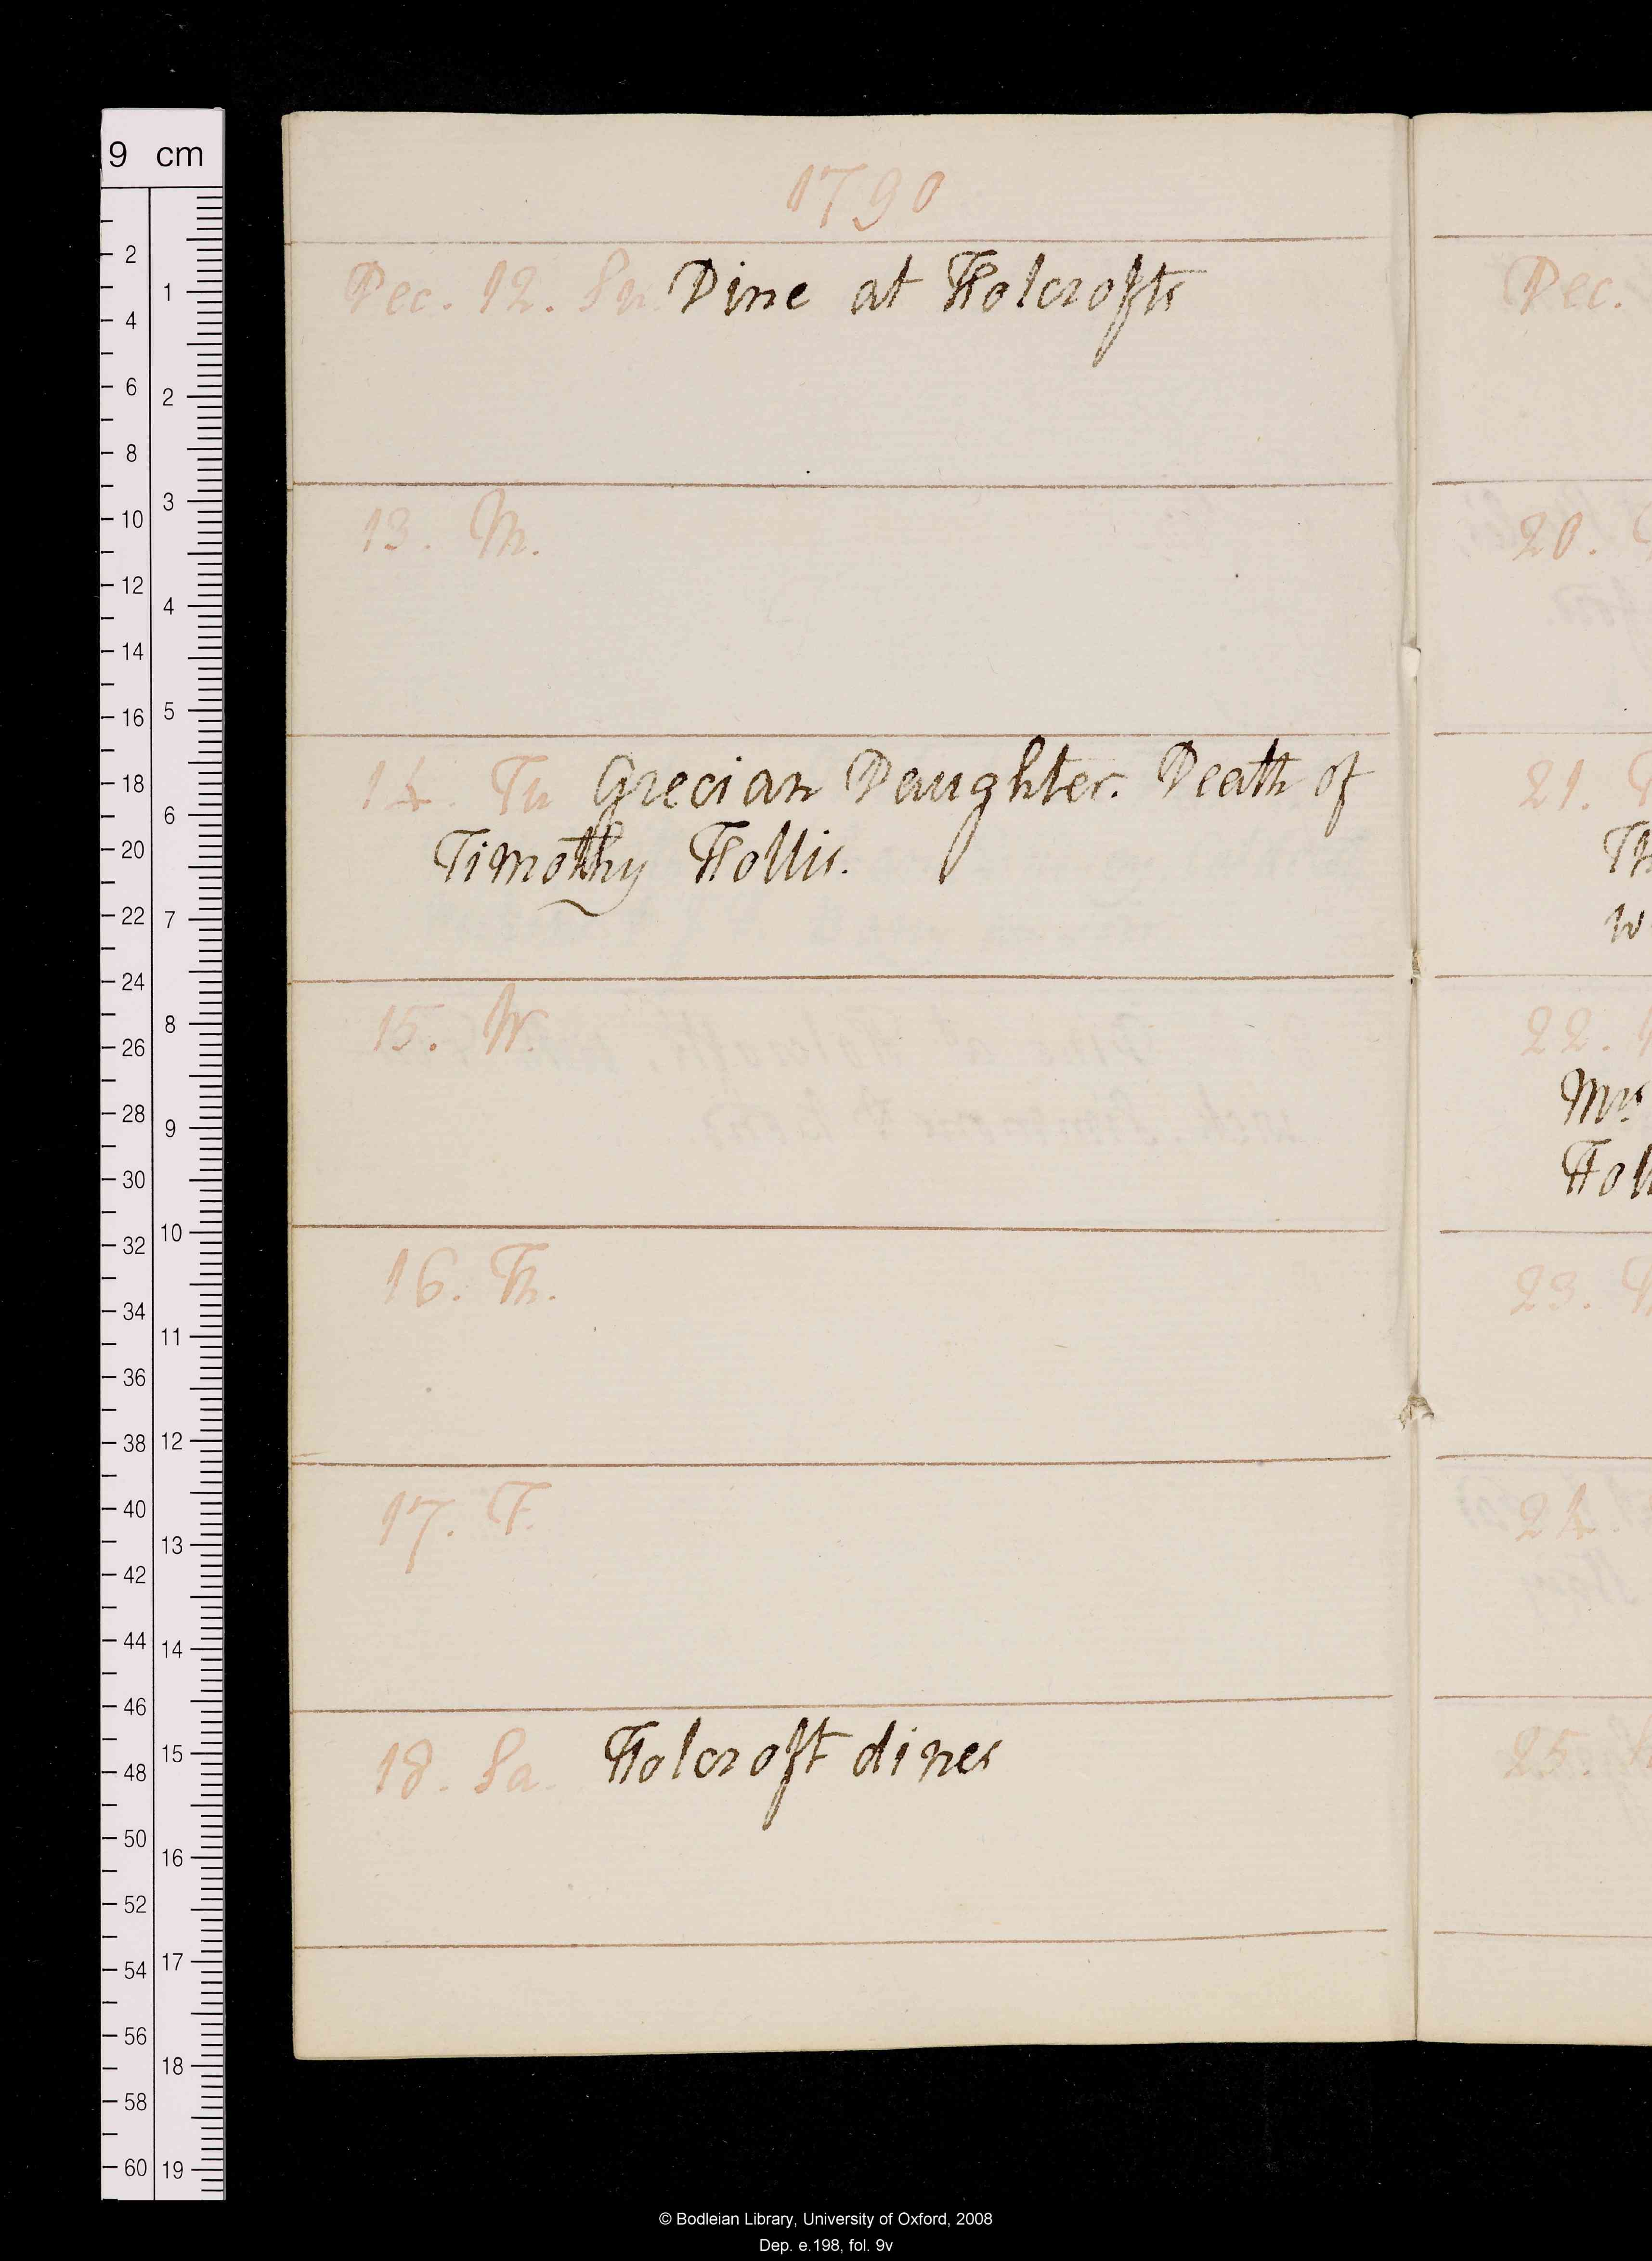 9 cm
1790
Dec. 12. Su. Dine at Holcrofts
13. M.
14. Tu Grecian Daughter. Death of
Timothy Hollis.
15. W.
16. Th.
17. F.
18. Sa. Holcroft dines
Dec.
20.
21.
22.
Mrs
23.
24.
25.
2
4
6
8
10
12
14
16
18
20
22
24
26
28
30
32
34
36
38
40
42
44
46
48
50
52
54
56
58
60
1
2
3
4
5
6
7
8
9
10
11
12
13
14
15
16
17
18
19
© Bodleian Library, University of Oxford, 2008
Dep. e.198, fol. 9v